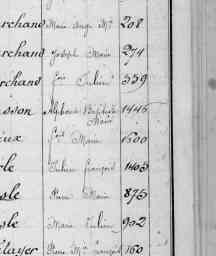 archand Marie Ange Me 208
archand Joseph Marie 274
archand fois Julien 359
sson Alphonse Baptiste Marie 1446
eux fois Marie 1600
rle Julien françois 1405
sle Pierre Marie 875
sle Marie Julien 902
layer Pierre Me françois 160